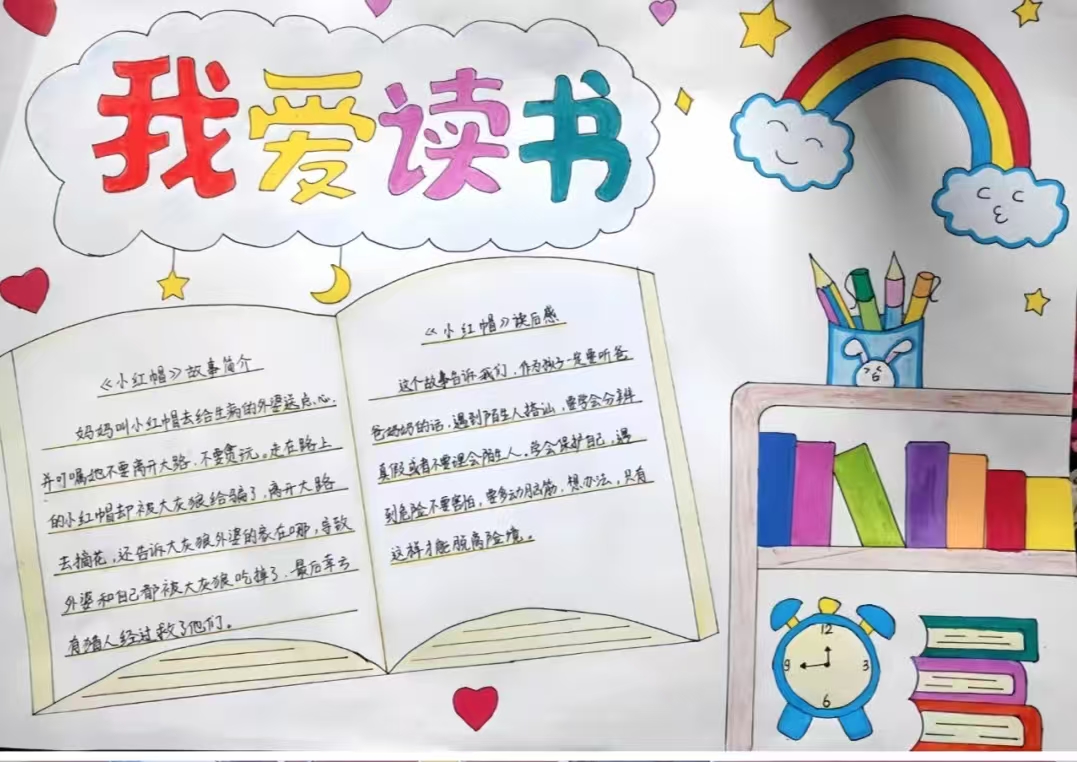 我爱读书
《小红帽》故事简介
妈妈叫小红帽去给生病的外婆送点心.
并叮嘱她不要离开大路、不要贪玩。走在路上
的小红帽却被大灰狼给骗了,离开大路
去摘花,还告诉大灰狼外婆的家在哪,导致
外婆和自己都被大灰狼吃掉了.最后幸亏
有猎人经过救了他们。
《小红帽》读后感
这个故事告诉我们,作为孩子一定要听爸
爸妈妈的话,遇到陌生人搭讪,要学会分辨
真假或者不要理会陌生人。学会保护自己,遇
到危险不要害怕,要多动脑筋,想办法,只有
这样才能脱离险境。
12
9
3
6